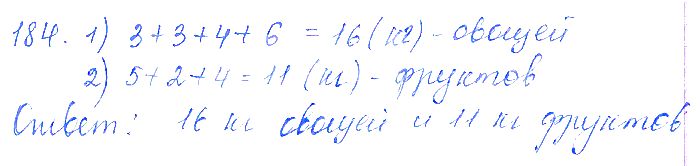 184. 1) 3+3+4+6 = 16 (кг) - овощей
2) 5+2+4=11 (кг) - фруктов
Ответ: 16 кг овощей и 11 кг фруктов